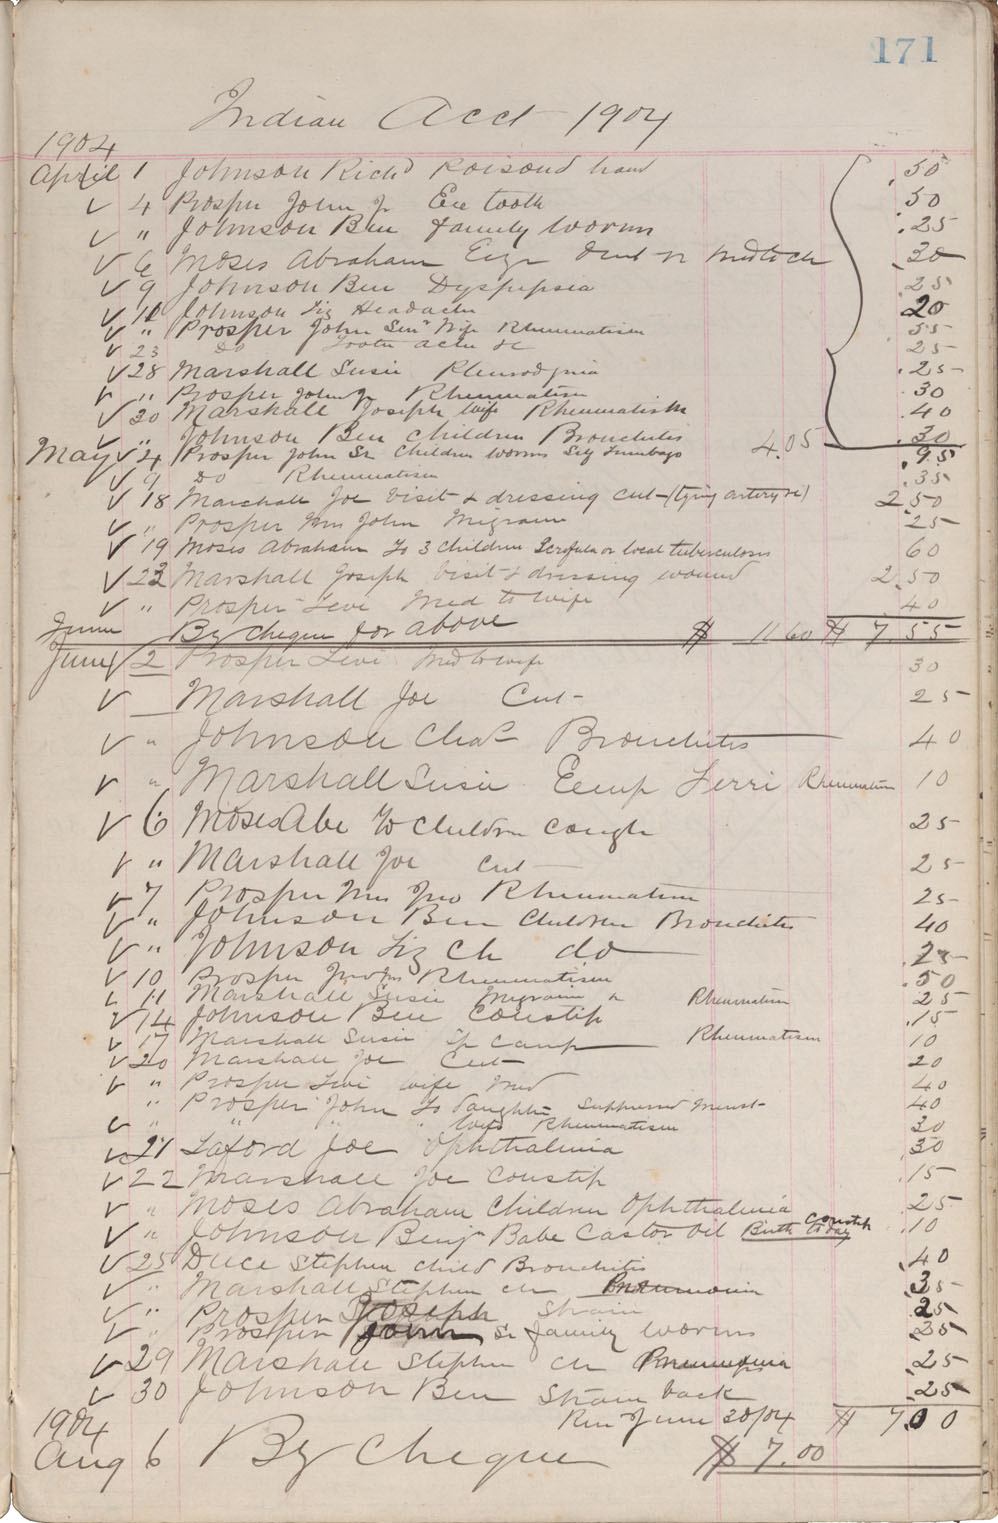 171
Indian Acct 1904
1904
April 1 Johnson Richd Poisond hand .50
✓ 4 Prosper John Jr Eye tooth 50
✓ " Johnson Ben family worms .25
✓ 6 Moses Abraham .30
✓ 9 Johnson Ben Dyspepsia .25
✓ 11 Johnson Liz Headache 20
✓ " Prosper John Senr Wife Rheumatism 55
✓ 23 Do Tooth ache &c 25
✓ 28 Marshall Susie .25
✓ " Prosper John Jr Rheumatism 30
✓ 30 Marshall Joseph wife Rheumatism .40
✓ " Johnson Ben children Bronchitis 4.05 .30
May ✓ 4 Prosper John Sr Children worms Self Lumbago .95
✓ 9 Do Rheumatism .35
✓ 18 Marshall Joe Visit & dressing cut (tying artery &c) 2.50
✓ " Prosper Mrs John Migraine .25
✓ 19 Moses Abraham To 3 children Scrofula or local tuberculosis 60
✓ 23 Marshall Joseph Visit & dressing wound 2.50
✓ " Prosper Levi Med to wife .40
June By cheque for above $ 11 60 $ 7.55
June ✓ 2 Prosper Levi Med to wife 30
✓ Marshall Joe Cut 25
✓ " Johnson Chas Bronchitis 40
✓ " Marshall Susie Ferri Rheumatism 10
✓ 6 Moses Abe To children cough 25
✓ " Marshall Joe cut 25
✓ 7 Prosper Mrs Jno Rheumatism 25
✓ " Johnson Ben Children Bronchitis 40
✓ " Johnson Liz Ch do .25
✓ 10 Prosper Rheumatism .50
✓ 11 Marshall Susie Migraine Rheumatism 25
✓ 14 Johnson Ben Constip .15
✓ 17 Marshall Susie Sp Camp Rheumatism 10
✓ 20 Marshall Joe Cut 20
✓ " Prosper Levi wife Med 40
" Prosper John To daughter Suppressed Menst 40
✓ " " " wife Rheumatism 30
✓ 21 Laford Joe Ophthalmia 30
✓ 22 Marshall Joe Constip .15
✓ " Moses Abraham Children Ophthalmia .25
✓ " Johnson Benj Babe Castor Oil Birth today constip .10
✓ 25 Duce Stephen child Bronchitis .40
✓ " Marshall Stephen ch Pneumonia .35
✓ " Prosper Joseph Strain .25
✓ " Prosper John Sr family worms .35
✓ 29 Marshall Stephen ch Pneumonia .25
✓ 30 Johnson Ben Strain back .25
June 30/04 $ 7.00
1904
Aug 6 By Cheque $ 7.00